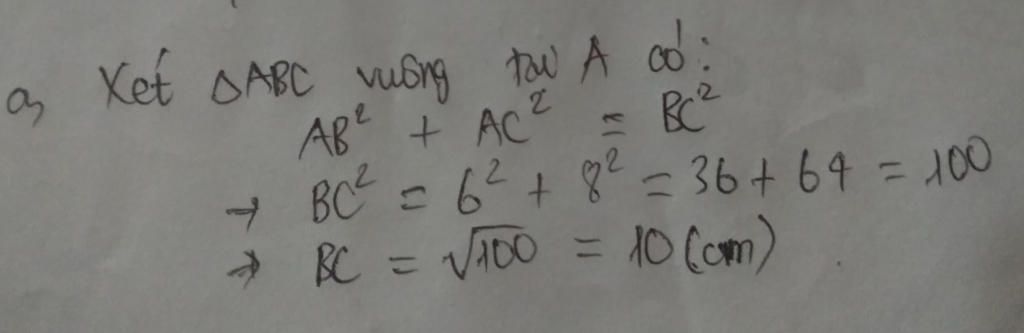 a, Xét ΔABC vuông tại A có:
AB² + AC² = BC²
→ BC² = 6² + 8² = 36 + 64 = 100
→ BC = √100 = 10 (cm)